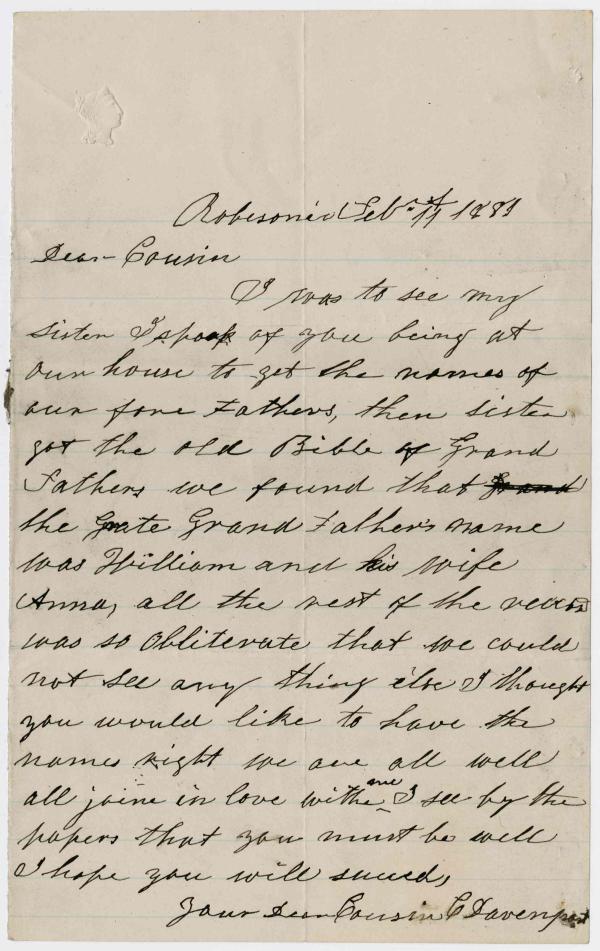 Feb. 11 1889
Dear Cousin
I was to see my
sister I spook of you being at
our house to get the names of
our fore Fathers, then sister
got the old Bible of Grand
Fathers we found that Grand
the Grate Grand Father's name
was William and his wife
Anna, all the rest of the
was so Obliterate that we could
not see any thing else I thought
you would like to have the
names right we are all well
all joine in love withe me I see by the
papers that you must be well
I hope you will
Your Dear Cousin C Davenport